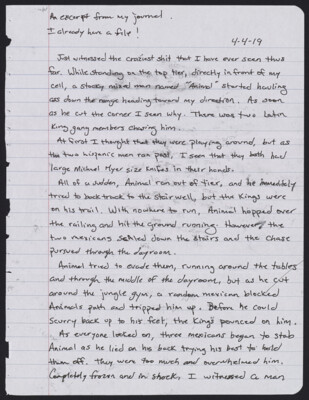 An excerpt from my journal.
I already have a file!
4-4-19
Just witnessed the craziest shit that I have ever seen thus
far. While standing on the top tier, directly in front of my
cell, a stocky mixed man named "Animal" started hauling
ass down the range heading toward my direction. As soon
as he cut the corner I seen why. There was two Latin
King gang members chasing him.
At first I thought that they were playing around, but as
the two hispanic men ran past, I seen that they both had
large Michael Myer size knifes in their hands.
All of a sudden, Animal ran out of tier, and he immediately
tried to back track to the stairwell, but the Kings were
on his trail. With nowhere to run, Animal hopped over
the railing and hit the ground running. However, the
two mexicans sailed down the stairs and the chase
pursued through the dayroom.
Animal tried to evade them, running around the tables
and through the middle of the dayroom, but as he cut
around the jungle gym, a random mexican blocked
Animals path and tripped him up. Before he could
scurry back up to his feet, the King's pounced on him.
As everyone looked on, three mexicans began to stab
Animal as he lied on his back trying his best to hold
them off. They were too much and overwhelmed him.
Completely frozen and in shock, I witnessed a man